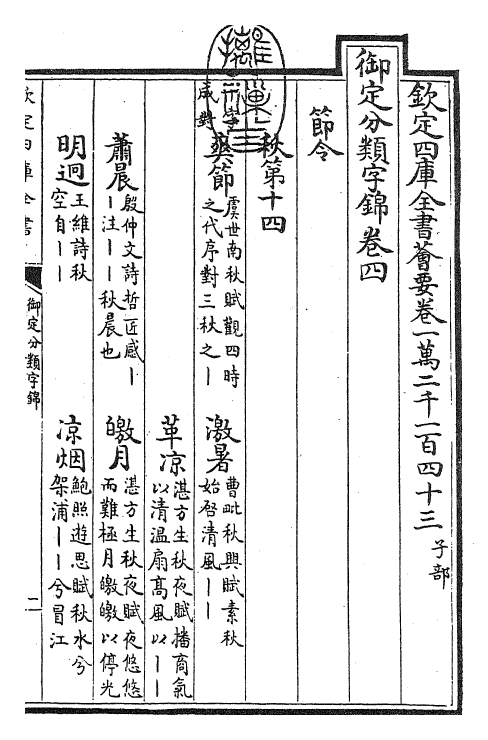 欽定四庫全書薈要卷一萬二千一百四十三 子部
御定分類字錦卷四
節令
秋第十四
二字成對
爽節 虞世南秋賦觀四時之代序對三秋之丨
激暑 曹毗秋興賦素秋始啓清風丨丨
革凉 湛方生秋夜賦播商氣以清溫扇高風以丨丨
蕭晨 殷仲文詩哲匠感丨丨注丨丨秋晨也
皦月 湛方生秋夜賦夜悠悠而難極月皦皦以停光
明迥 王維詩秋空自丨丨
凉烟 鮑照遊思賦秋水兮架浦丨丨兮冒江
欽定四庫全書
御定分類字錦